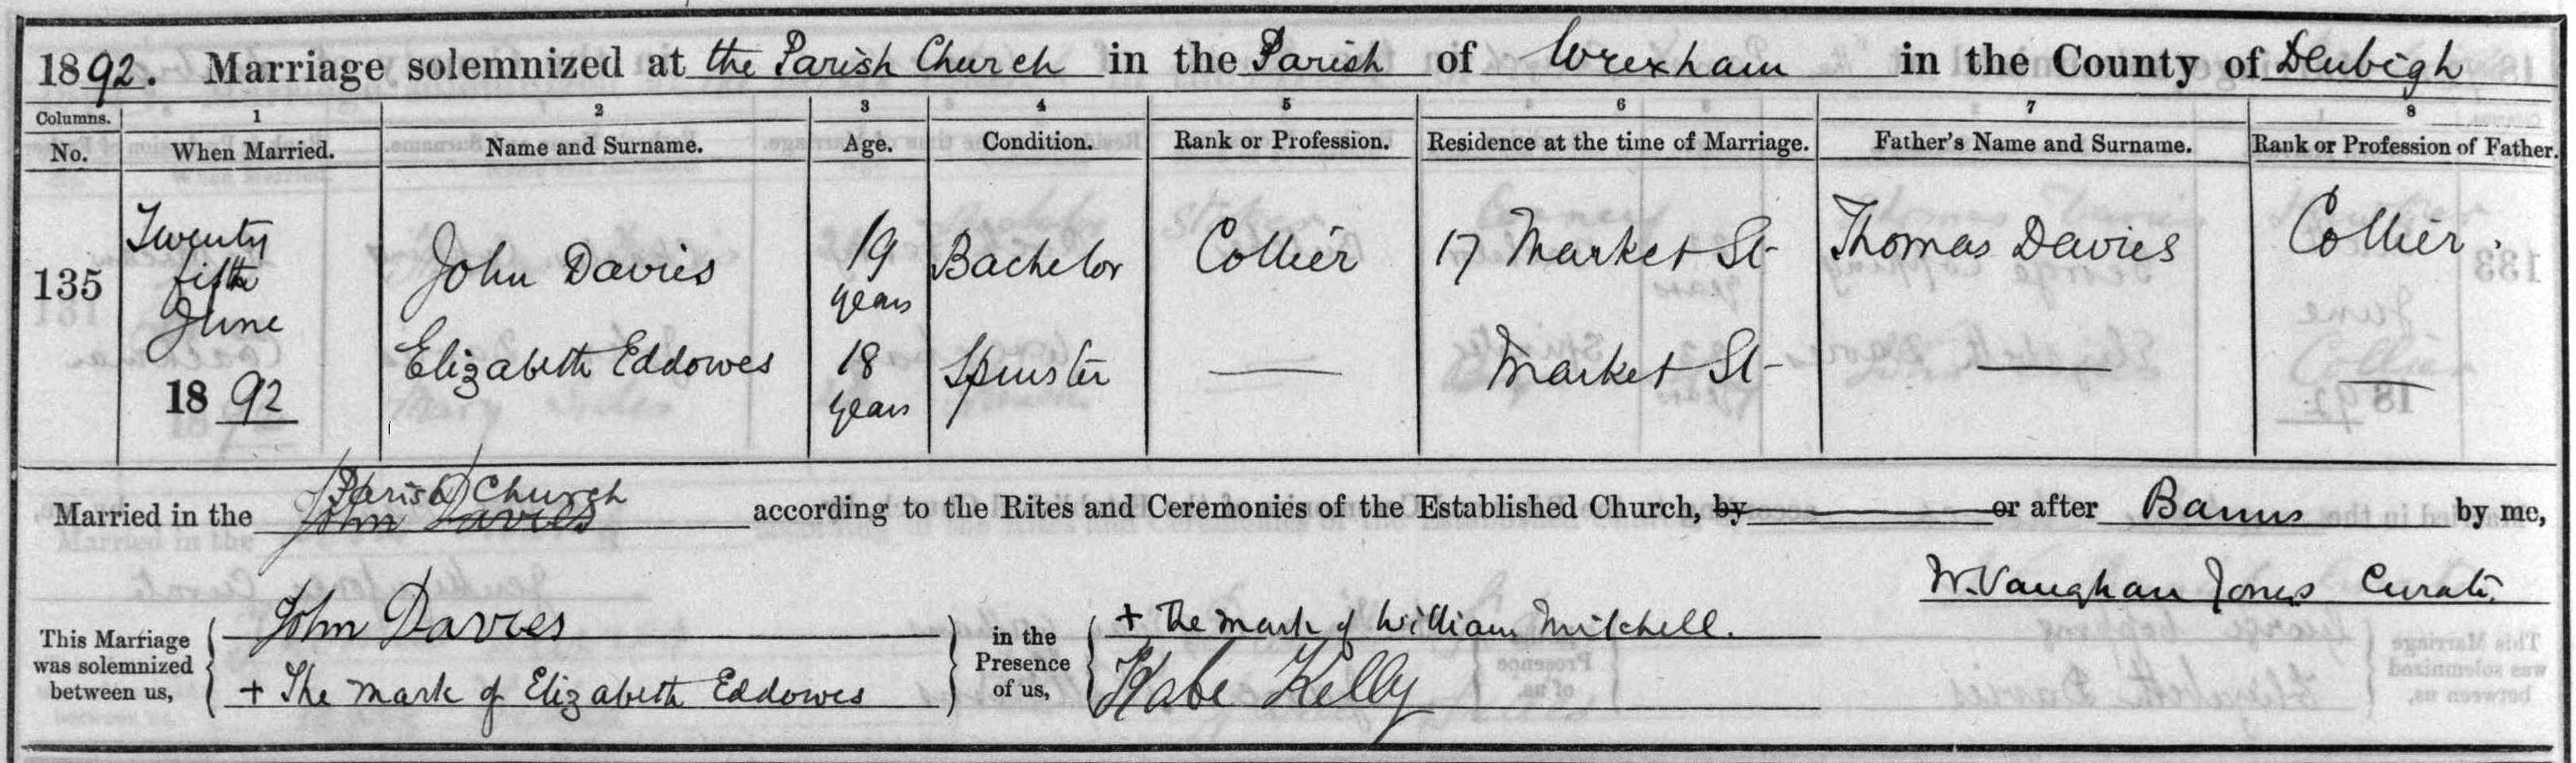 1892. Marriage solemnized at the Parish Church in the Parish of Wrexham in the County of Denbigh
Columns. 1 2 3 4 5 6 7 8
No. When Married. Name and Surname. Age. Condition. Rank or Profession. Residence at the time of Marriage. Father's Name and Surname. Rank or Profession of Father.
135 Twenty fifth June 1892 John Davies 19 years Bachelor Collier 17 Market St Thomas Davies Collier.
Elizabeth Eddowes 18 years Spinster — Market St — —
Married in the Parish Church John Davies according to the Rites and Ceremonies of the Established Church, by or after Banns by me,
W. Vaughan Jones Curate.
This Marriage was solemnized between us, John Davies
+ The mark of Elizabeth Eddowes
in the Presence of us, + The mark of William Mitchell.
Kate Kelly